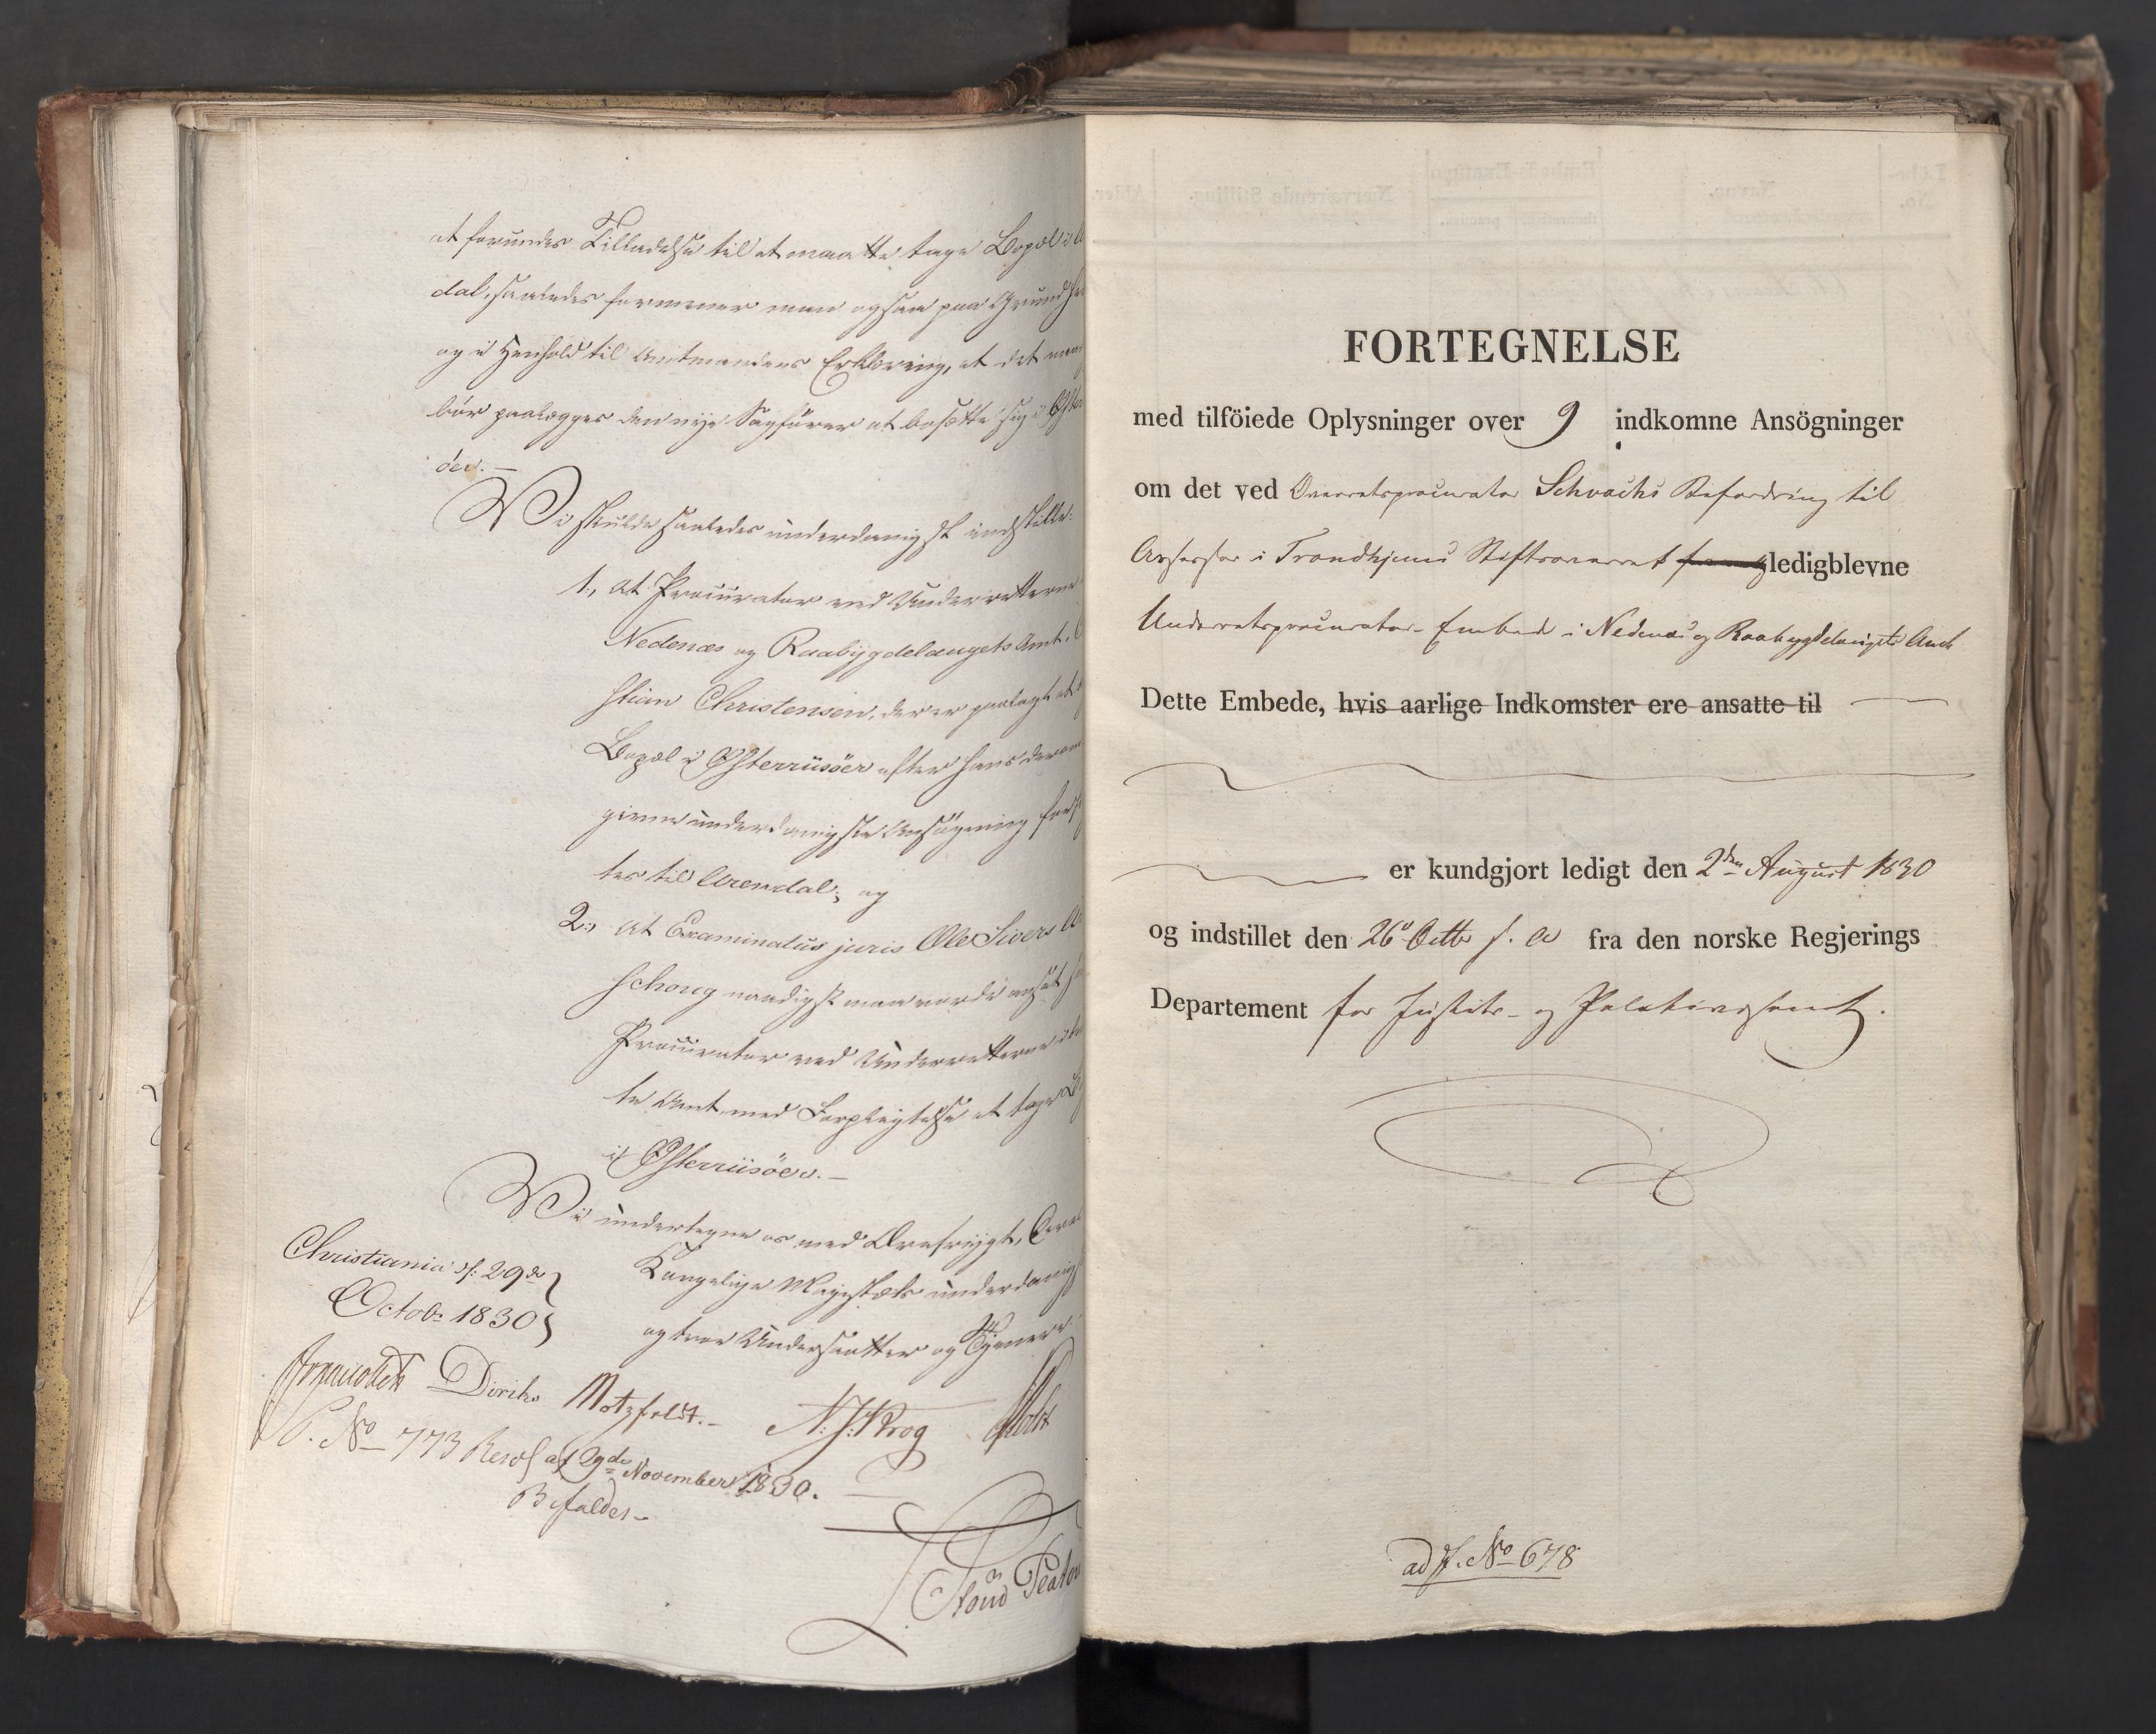 at forundes Tilladelse til at maatte tage Bopæl i
dal, saaledes formener man ogsaa paa Grund
og i Henhold til Amtmandens Erklæring, at det
bör paalægges den nye Sagförer at bosætte sig i Öster
öer.—
Vi skulde saaledes underdanigst indstille:
1., at Procurator ved Underretterne
Nedenæs og Raabygdelaugets Amt,
stian Christensen, der er paalagt at
Bopæl i Österriisöer efter hans derom
givne underdanigste Ansögning
tes til Arendal; og
2., at Examinatus juris Ole Sivers
schoug naadigst maa vorde ansat
Procurator ved Underretterne i
te Amt med Forpligtelse at tage
i Österriisöer.—
Vi undertegne os med Ærefrygt,
Kongelige Majestæts underdanigste
og troe Undersaatter og Tjenere
Christiania d: 29de
Octobr 1830
Diriks Motzfeldt.— N: J: Krog Holst
P. No 773 Resol af 29de November 1830.
Bifaldes—
FORTEGNELSE
med tilföiede Oplysninger over 9 indkomne Ansögninger
om det ved Overretsprocurator Schwachs Befordring til
Assessor i Trondhjems Stiftsoverret ledigblevne
Underretsprocurator-Embed i Nedenæs og Raabygdelaugets Amt
Dette Embede, hvis aarlige Indkomster ere ansatte til —
er kundgjort ledigt den 2den August 1830
og indstillet den 26d Octbr s. A fra den norske Regjerings
Departement for Justits- og Politievæsenet.
ad J. No 678